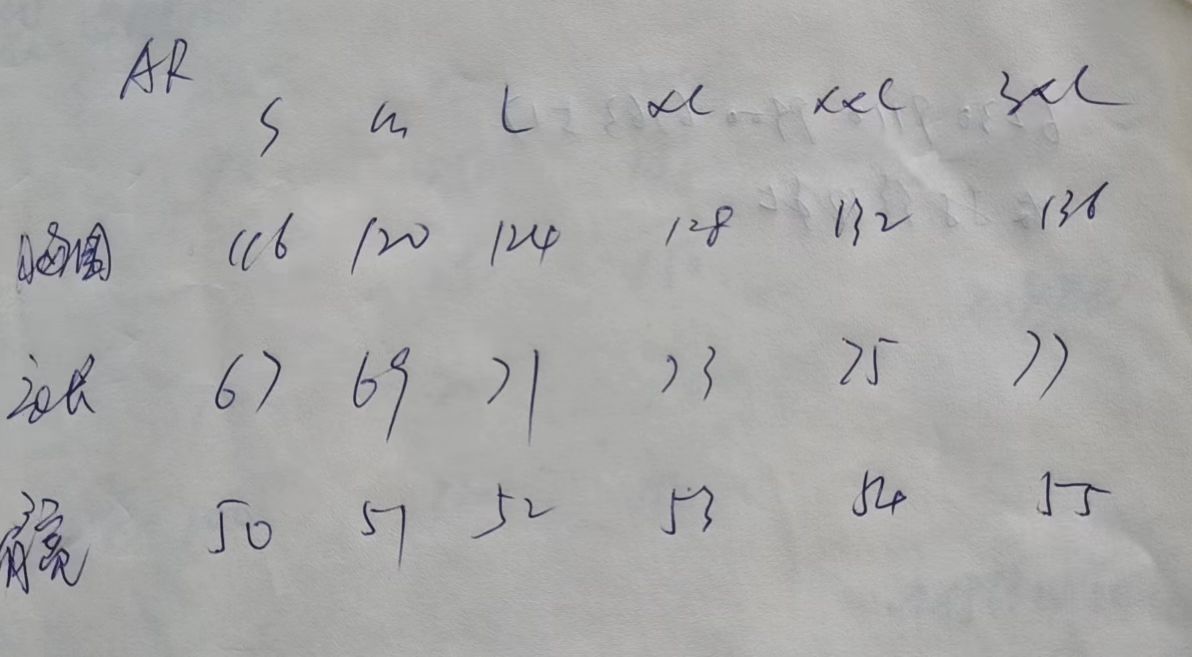 AR
S M L XL XXL 3XL
胸围 116 120 124 128 132 136
衣长 67 69 71 73 75 77
肩宽 50 51 52 53 54 55